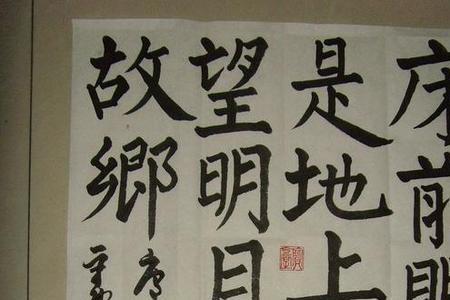 床前明
是地上
望明月
故鄉